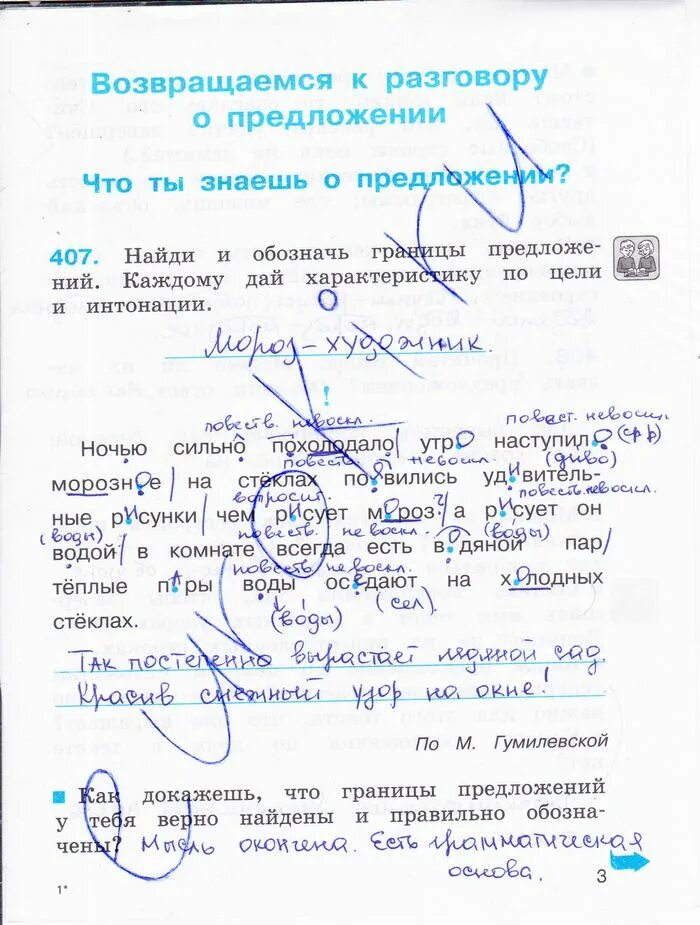 Возвращаемся к разговору
о предложении
Что ты знаешь о предложении?
407. Найди и обозначь границы предложе-
ний. Каждому дай характеристику по цели
и интонации.
Мороз – художник.
!
повеств. невоскл. повест. невоскл.
Ночью сильно похолодало/ утрО наступилО (ср.р)
повеств. невоскл. (диво)
морознОе / на стёклах поЯвились удИвитель-
вопросит. повеств. невоскл.
ные рИсунки/ чем рИсует мОроз?/ а рИсует он
(воды) повеств. невоскл. (воды)
водой/ в комнате всегда есть вОдяной пар/
повеств. невоскл.
тёплые пАры воды осЕдают на хОлодных
стёклах. (воды) (сел)
Так постепенно вырастает ледяной сад.
Красив снежный узор на окне!
По М. Гумилевской
Как докажешь, что границы предложений
у тебя верно найдены и правильно обозна-
чены? Мысль окончена. Есть грамматическая
основа.
3
1*